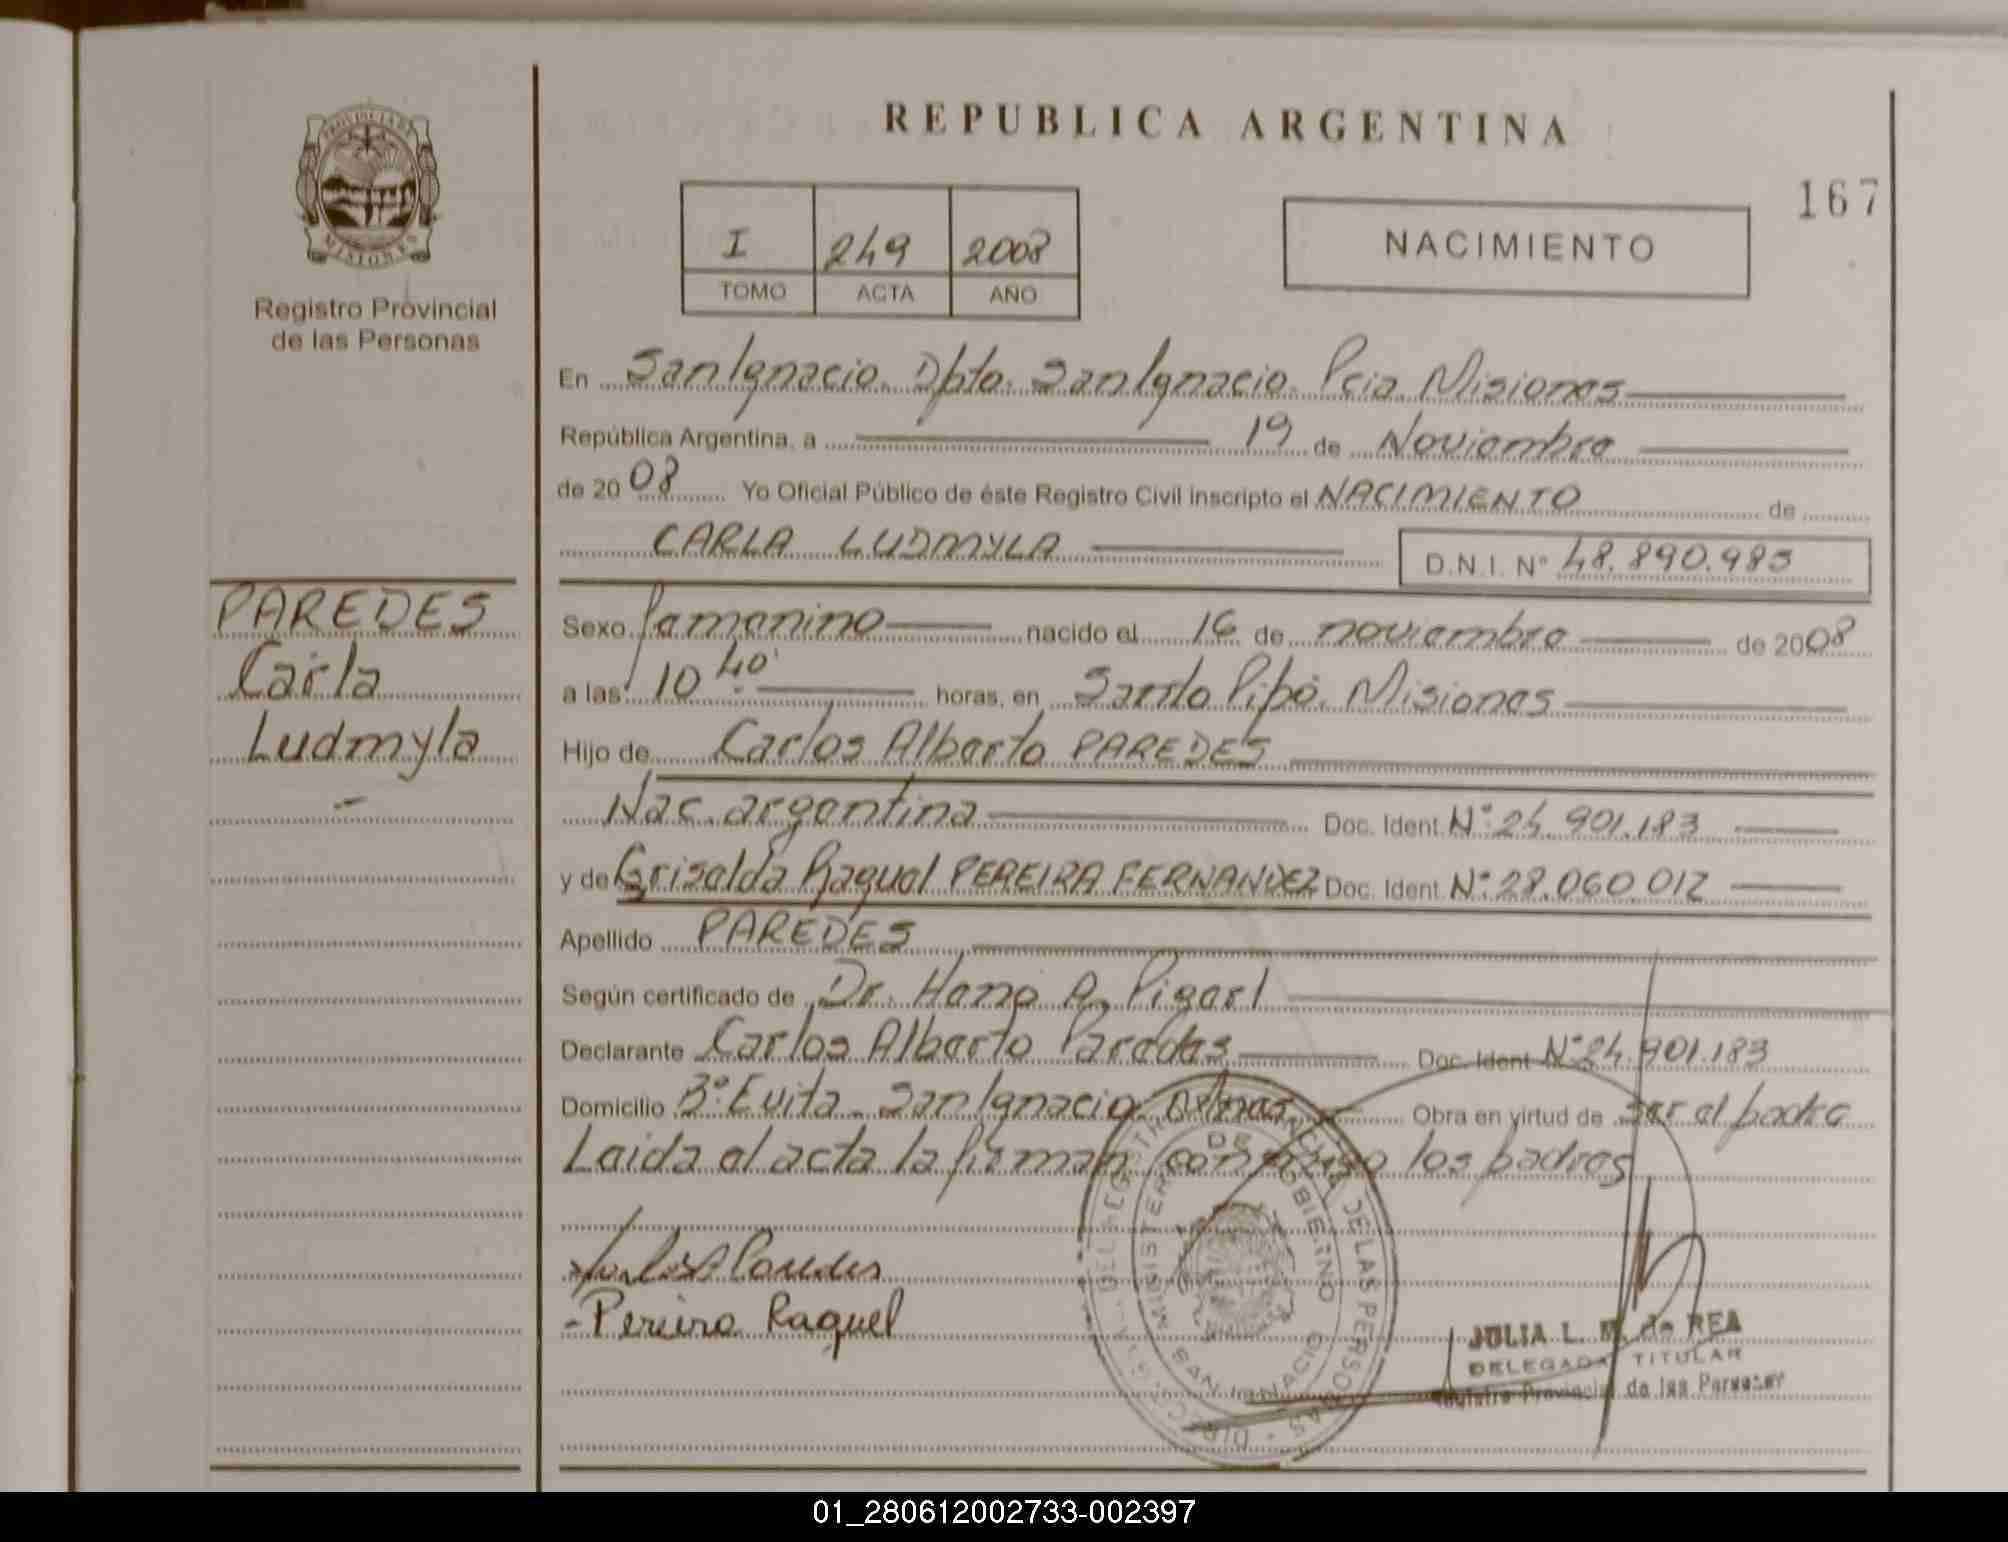 REPUBLICA ARGENTINA
167
PROVINCIA DE
MISIONES
Registro Provincial
de las Personas
I 249 2008
TOMO ACTA AÑO
NACIMIENTO
En San Ignacio. Dpto. San Ignacio. Pcia. Misiones
República Argentina, a 19 de Noviembre
de 2008 Yo Oficial Público de éste Registro Civil inscripto el NACIMIENTO de
CARLA LUDMYLA D.N.I. Nº 48.890.983
PAREDES
Carla
Ludmyla
Sexo femenino nacido el 16 de noviembre de 2008
a las 10 40' horas, en Santo Pipó. Misiones
Hijo de Carlos Alberto PAREDES
Nac. argentina Doc. Ident. Nº 24.901.183
y de Griselda Raquel PEREIRA FERNANDEZ Doc. Ident. Nº 28.060.012
Apellido PAREDES
Según certificado de Dr. Hans A.
Declarante Carlos Alberto Paredes Doc. Ident Nº 24.901.183
Domicilio Bº Evita. San Ignacio. Obra en virtud de ser el padre
Leida el acta la firman conmigo los padres
Paredes
- Pereira Raquel
DEL REGISTRO PROVINCIAL DE LAS PERSONAS
MINISTERIO DE GOBIERNO
SAN IGNACIO
JULIA L. M. de REA
DELEGADA TITULAR
Registro Provincial de las Personas
01_280612002733-002397